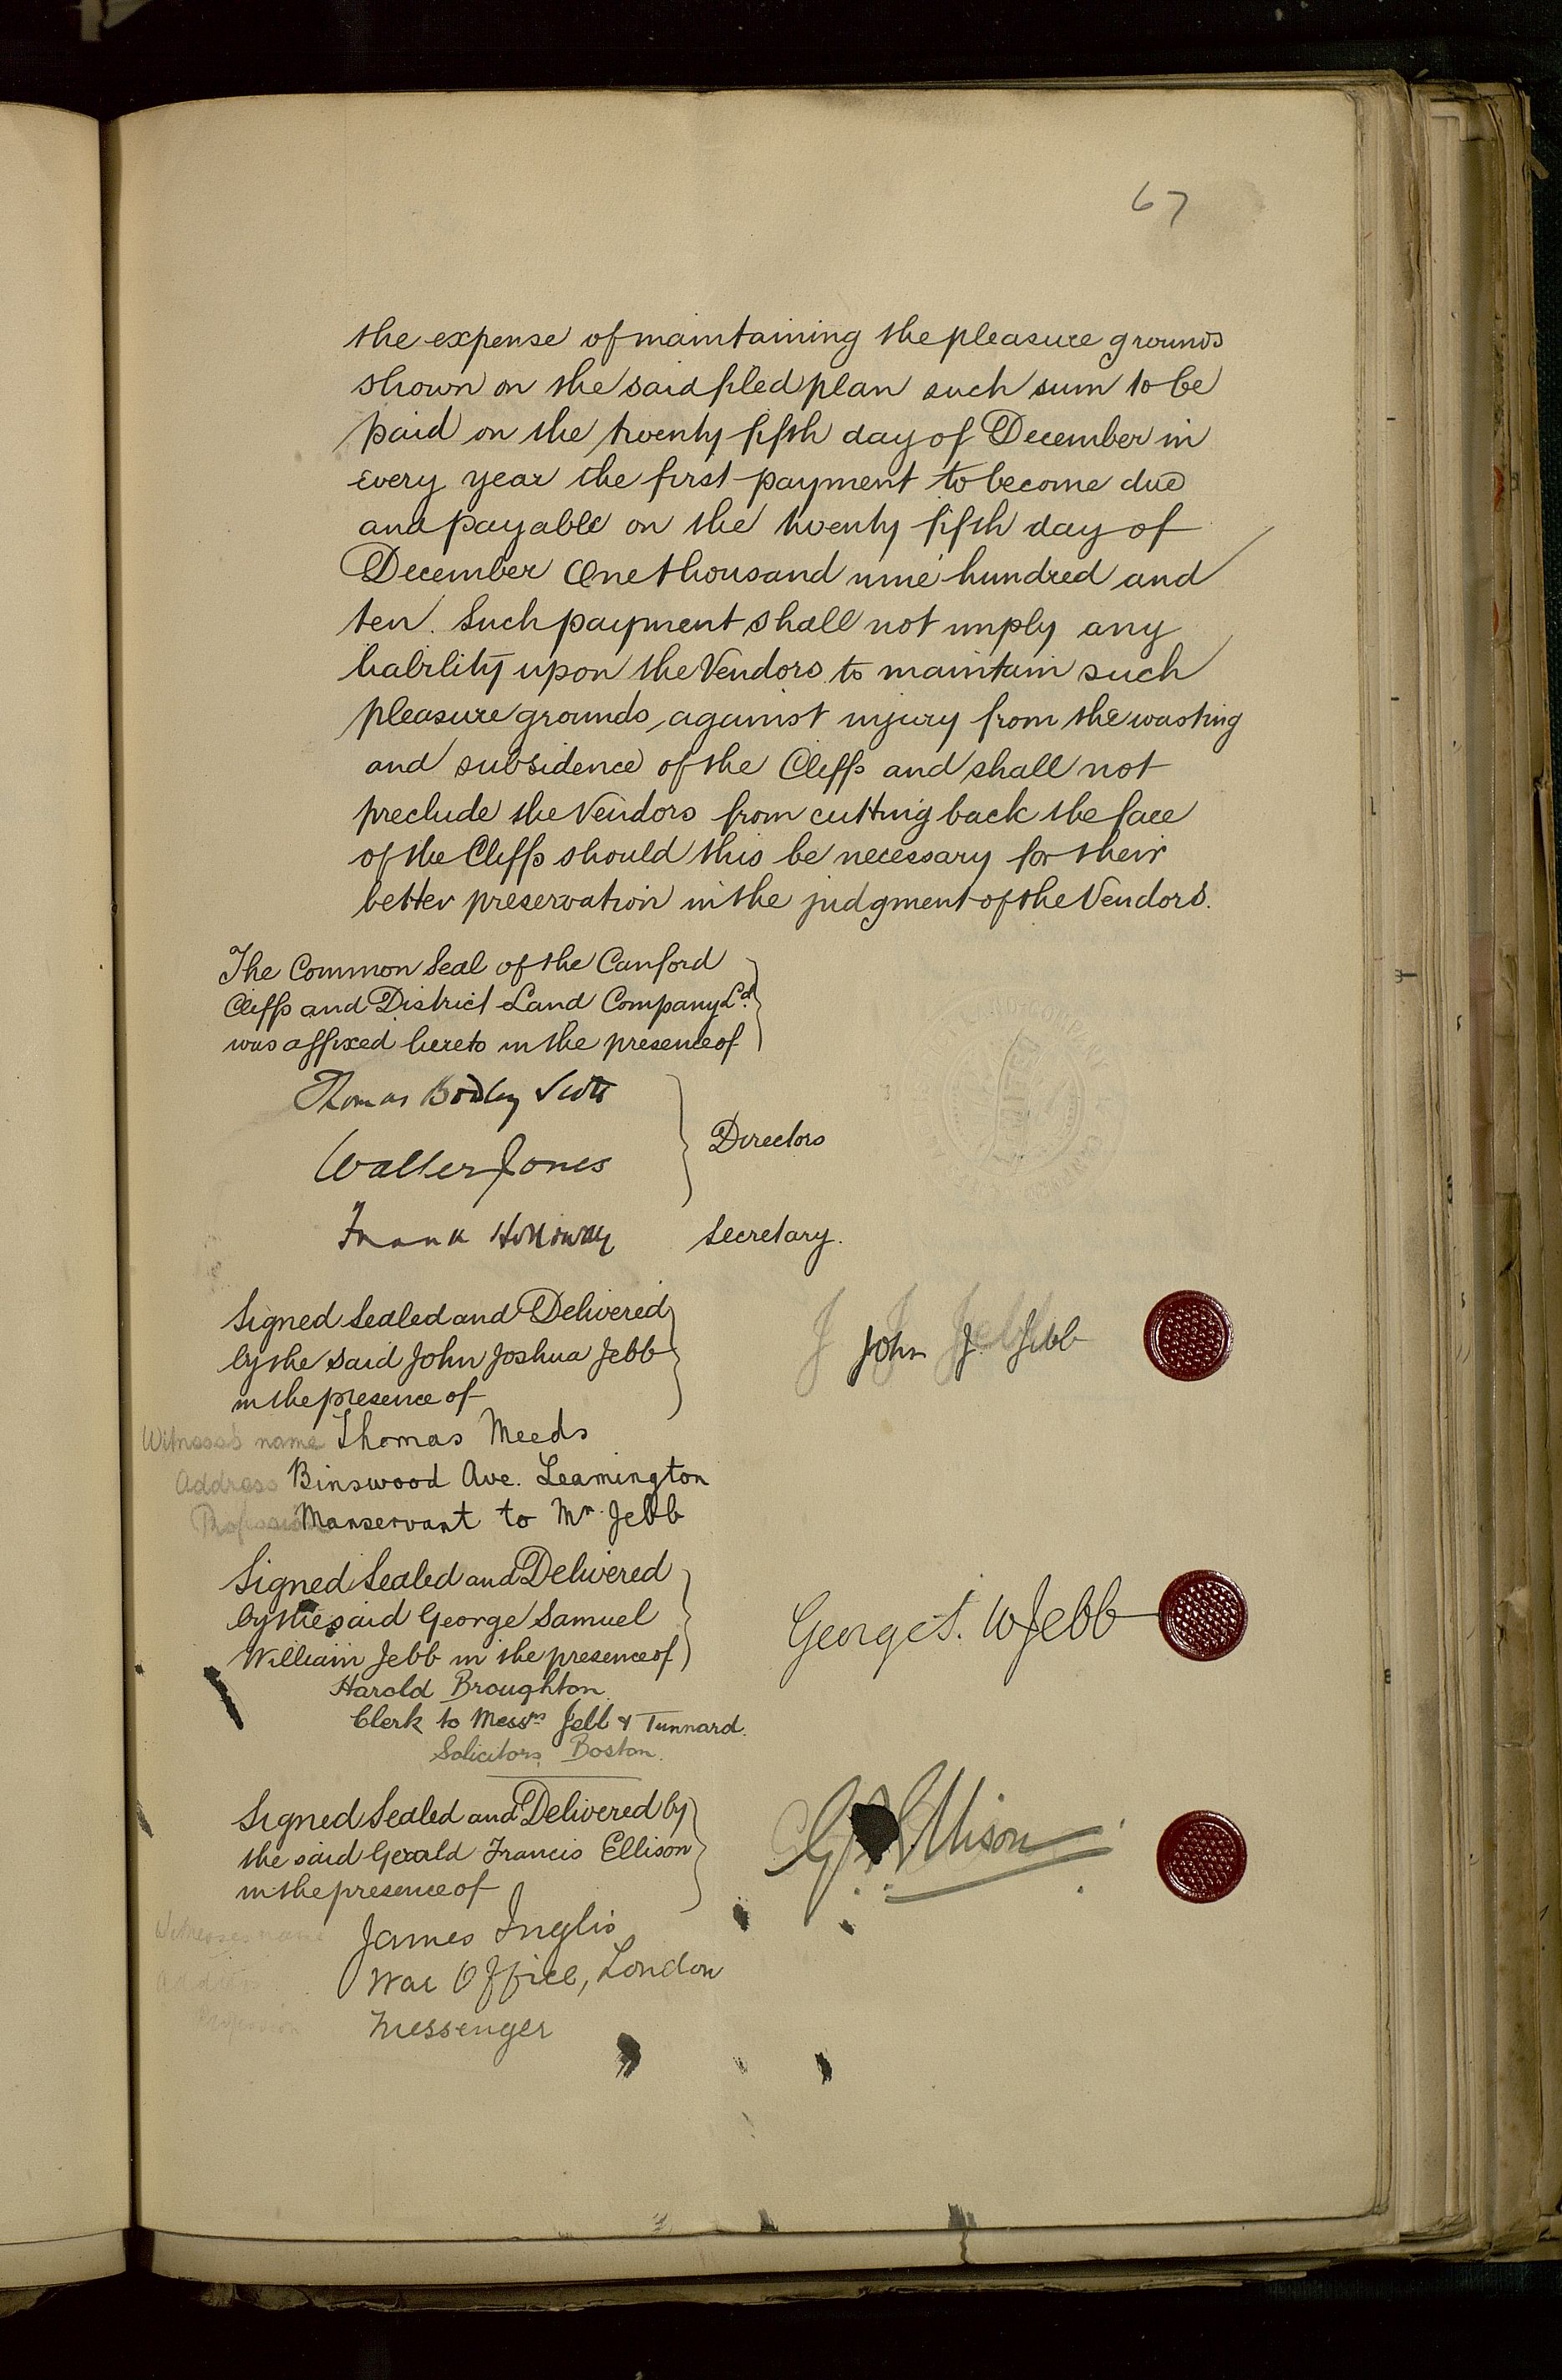 67
the expense of maintaining the pleasure grounds
shown on the said filed plan such sum to be
paid on the twenty fifth day of December in
every year the first payment to become due
and payable on the twenty fifth day of
December One thousand nine hundred and
ten. Such payment shall not imply any
liability upon the Vendors to maintain such
pleasure grounds against injury from the wasting
and subsidence of the Cliffs and shall not
preclude the Vendors from cutting back the face
of the Cliffs should this be necessary for their
better preservation in the judgment of the Vendors.
The Common Seal of the Canford
Cliffs and District Land Company Ld.
was affixed hereto in the presence of
Thomas Bodley Scott
Walter Jones
Directors
Frank Holloway Secretary.
Signed Sealed and Delivered
by the said John Joshua Jebb
in the presence of
John J. Jebb
Witness's name Thomas Meeds
Address Binswood Ave. Leamington
Profession Manservant to Mr. Jebb
Signed Sealed and Delivered
by the said George Samuel
William Jebb in the presence of
George S. W Jebb
Harold Broughton.
Clerk to Messrs Jebb & Tunnard.
Solicitors, Boston.
Signed Sealed and Delivered by
the said Gerald Francis Ellison
in the presence of
G F Ellison
Witnesses name James Inglis
Address War Office, London
Profession Messenger